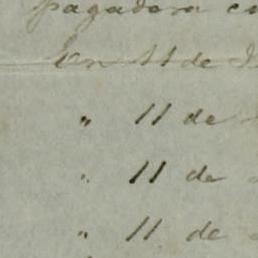 pagadera co
En 11 de
" 11 de
" 11 de
" 11 de